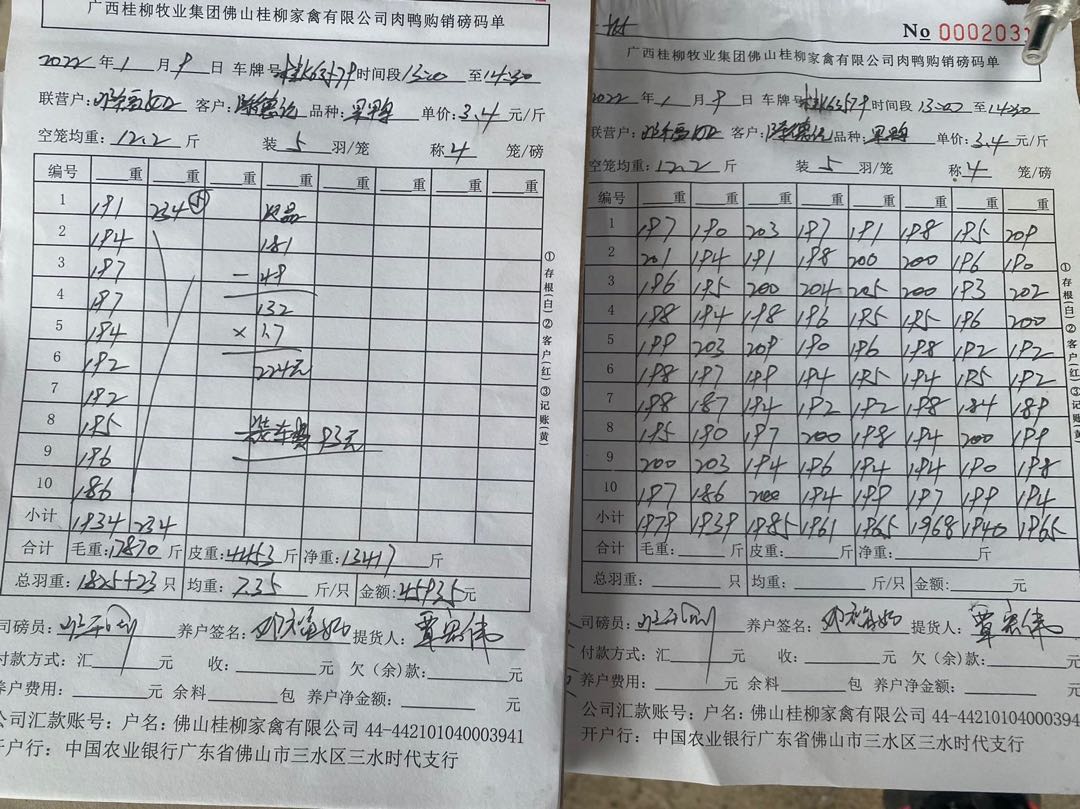 广西桂柳牧业集团佛山桂柳家禽有限公司肉鸭购销磅码单
2022年1月9日 车牌号 时间段13:00至14:30
联营户: 客户: 品种: 单价:3.4元/斤
空笼均重:12.2斤 装5羽/笼 称4笼/磅
编号 重 重 重 重 重 重 重 重
1 191 234 次品
2 194 181
3 197 -49
4 197 132
5 194 ×1.7
6 192 224元
7 192
8 195 装车费 93元
9 196
10 186
小计 1934 234
合计 毛重:17870斤 皮重:4453斤 净重:13417斤
总羽重:1825+23只 均重:7.35斤/只 金额:45935元
司磅员: 养户签名: 提货人:覃宏伟
付款方式:汇 元 收: 元 欠(余)款: 元
养户费用: 元 余料 包 养户净金额: 元
公司汇款账号:户名:佛山桂柳家禽有限公司 44-442101040003941
开户行:中国农业银行广东省佛山市三水区三水时代支行
①存根(白)②客户(红)③记账(黄)
No 0002031
广西桂柳牧业集团佛山桂柳家禽有限公司肉鸭购销磅码单
2022年1月9日 车牌号 时间段13:00至14:30
联营户: 客户: 品种: 单价:3.4元/斤
空笼均重:12.2斤 装5羽/笼 称4笼/磅
编号 重 重 重 重 重 重 重 重
1 197 190 203 197 191 198 195 209
2 201 194 191 198 200 200 196 190
3 196 195 200 204 205 200 193 202
4 198 194 198 196 195 195 196 200
5 199 203 209 190 196 198 192 192
6 198 197 199 194 195 194 195 192
7 198 187 194 192 192 198 184 189
8 195 190 197 200 198 194 200 199
9 200 203 194 196 194 194 190 198
10 197 186 200 194 199 197 199 194
小计 1979 1939 1985 1961 1965 1968 1940 1965
合计 毛重: 斤 皮重: 斤 净重: 斤
总羽重: 只 均重: 斤/只 金额: 元
司磅员: 养户签名: 提货人:覃宏伟
付款方式:汇 元 收: 元 欠(余)款: 元
养户费用: 元 余料 包 养户净金额: 元
公司汇款账号:户名:佛山桂柳家禽有限公司 44-44210104000394
开户行:中国农业银行广东省佛山市三水区三水时代支行
①存根(白)②客户(红)③记账(黄)